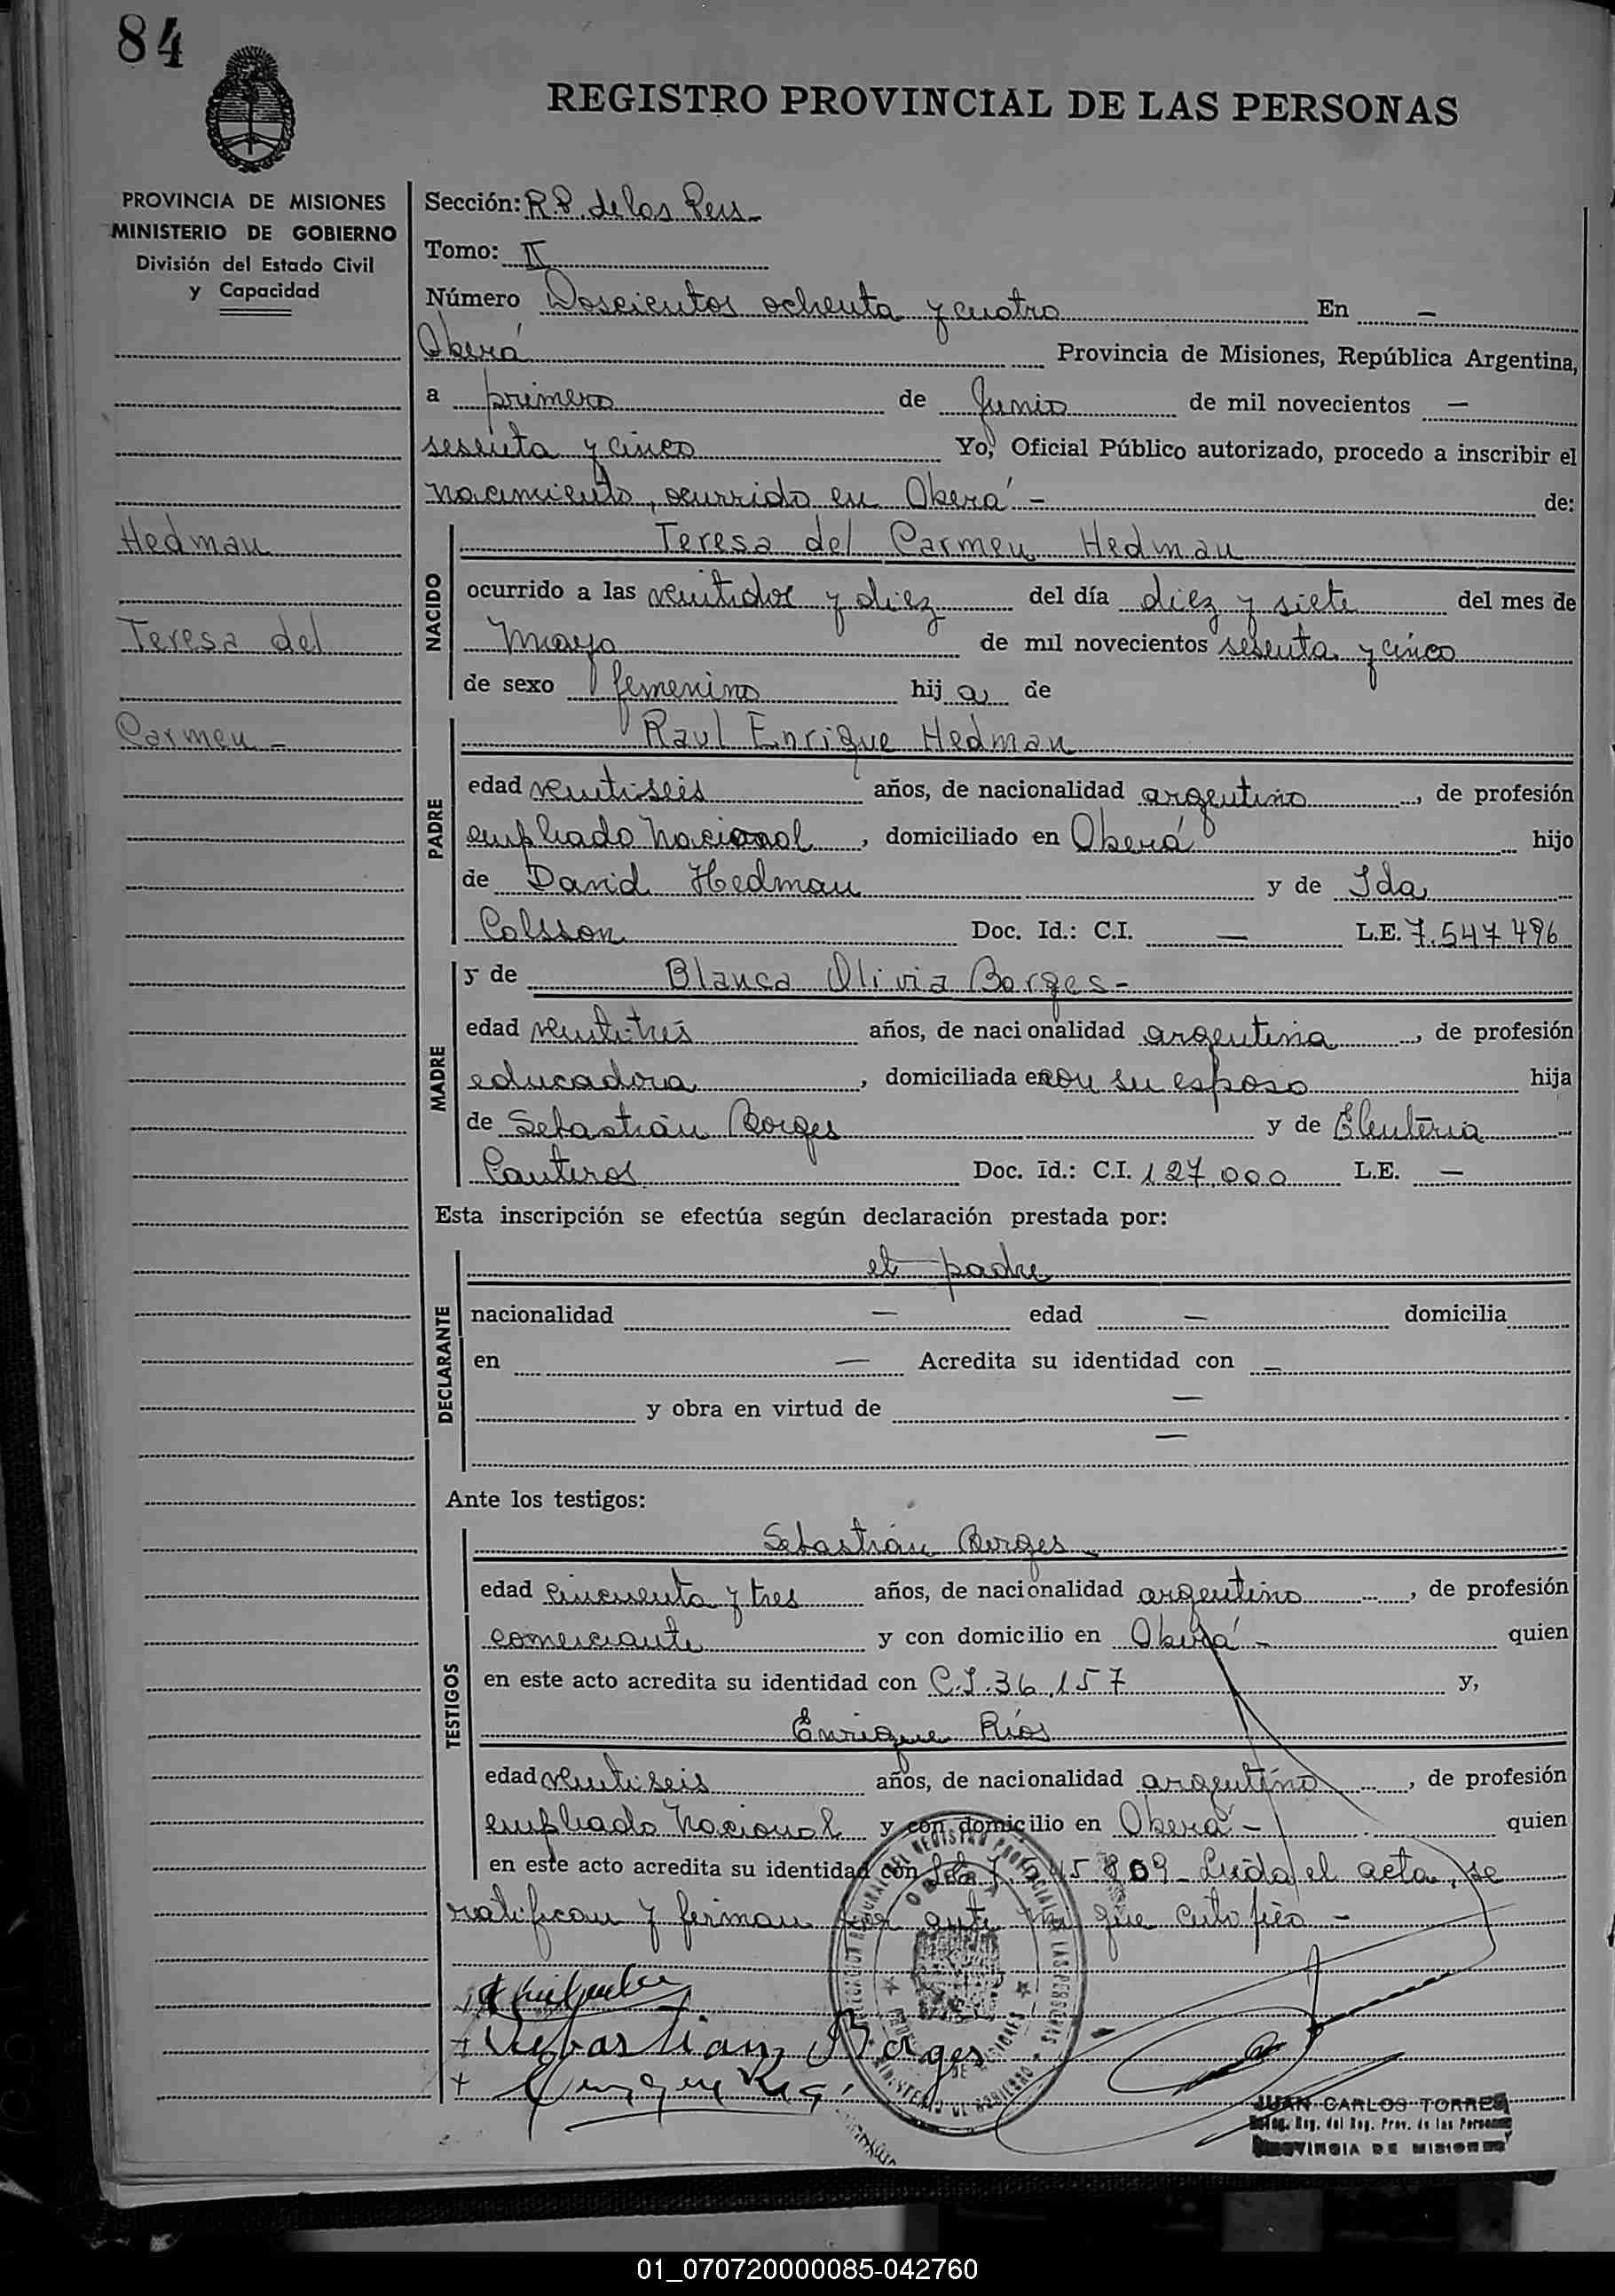 84
REGISTRO PROVINCIAL DE LAS PERSONAS
PROVINCIA DE MISIONES
MINISTERIO DE GOBIERNO
División del Estado Civil
y Capacidad
Hedman
Teresa del
Carmen -
Sección: R.P. de las Pers.
Tomo: II
Número Doscientos ochenta y cuatro En -
Oberá Provincia de Misiones, República Argentina,
a primero de Junio de mil novecientos -
sesenta y cinco Yo, Oficial Público autorizado, procedo a inscribir el
nacimiento, ocurrido en Oberá - de:
NACIDO
Teresa del Carmen Hedman
ocurrido a las veintidos y diez del día diez y siete del mes de
Mayo de mil novecientos sesenta y cinco
de sexo femenino hij a de
PADRE
Raul Enrique Hedman
edad veintiseis años, de nacionalidad argentino, de profesión
empleado Nacional, domiciliado en Oberá hijo
de David Hedman y de Ida
Colsson Doc. Id.: C.I. - L.E. 7.547.496
MADRE
y de Blanca Olivia Borges -
edad veintitrés años, de nacionalidad argentina, de profesión
educadora, domiciliada en con su esposo hija
de Sebastián Borges y de Eleuteria
Canteros Doc. Id.: C.I. 127.000 L.E. -
Esta inscripción se efectúa según declaración prestada por:
DECLARANTE
el padre
nacionalidad - edad - domicilia
en - Acredita su identidad con -
y obra en virtud de -
-
Ante los testigos:
TESTIGOS
Sebastián Borges
edad cincuenta y tres años, de nacionalidad argentino, de profesión
comerciante y con domicilio en Oberá - quien
en este acto acredita su identidad con C.I. 36.157 y,
Enrique Ríos
edad veintiseis años, de nacionalidad argentino, de profesión
empleado Nacional y con domicilio en Oberá - quien
en este acto acredita su identidad con 809 - Leída el acta, se
ratifican y firman por ante mi que certifico -
Sebastian Borges
JUAN CARLOS TORRES
Deleg. Reg. del Reg. Prov. de las Personas
PROVINCIA DE MISIONES
01_070720000085-042760